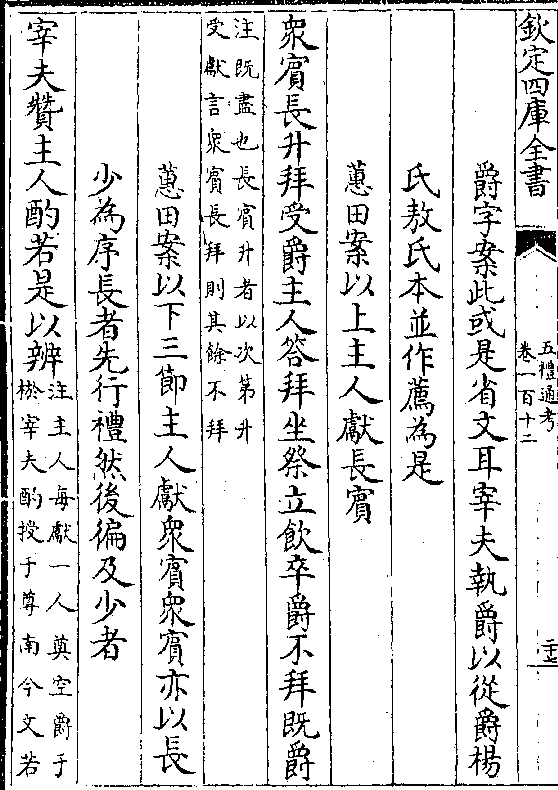 欽定四庫全書
五禮通考
卷一百十二
二十七
爵字案此或是省文耳宰夫執爵以從爵楊
氏敖氏本並作薦為是
蕙田案以上主人獻長賓
衆賓長升拜受爵主人答拜坐祭立飲卒爵不拜既爵
注既盡也長賓升者以次第升
受獻言衆賓長拜則其餘不拜
蕙田案以下三節主人獻衆賓衆賓亦以長
少為序長者先行禮然後徧及少者
宰夫贊主人酌若是以辨
注主人每獻一人奠空爵于
棜宰夫酌授于尊南今文若